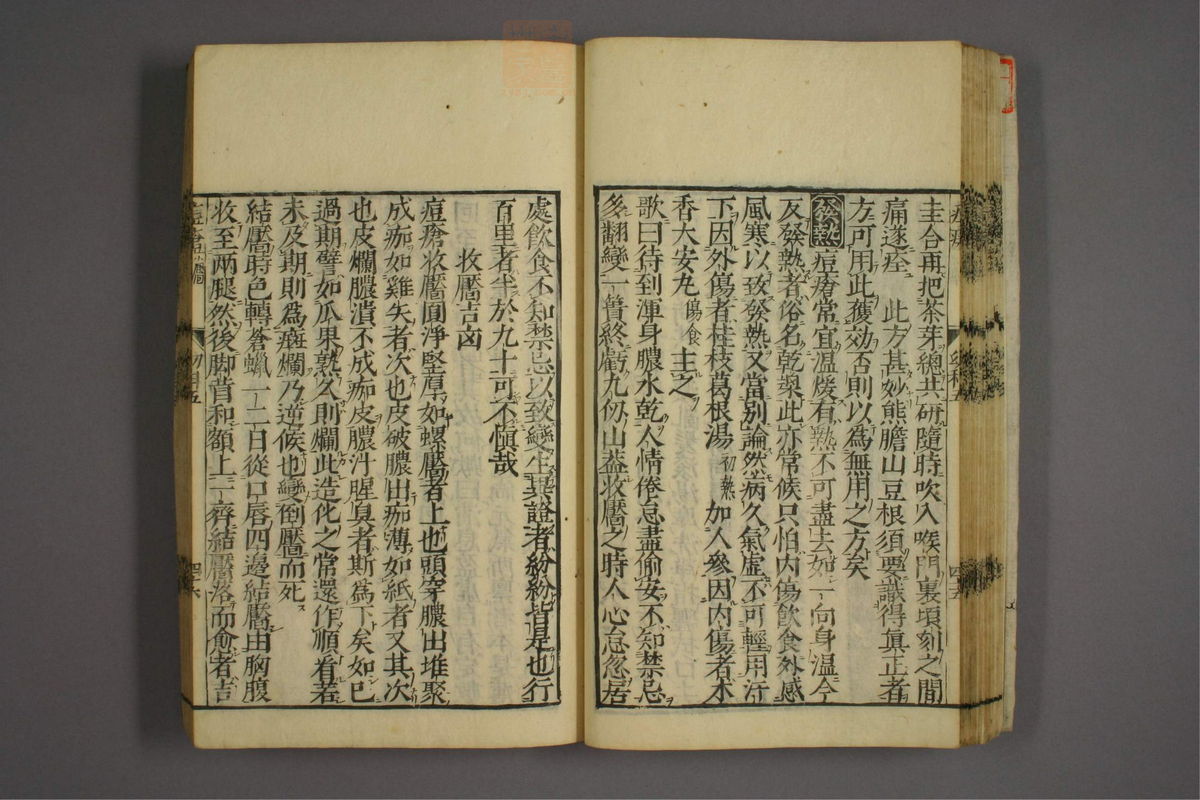 圭合再把茶芽總共研隨時吹入喉門裏頃刻之間
痛遂痊 此方甚妙熊膽山豆根須要識得眞正者
方可用此獲効否則以爲無用之方矣
發熱 痘瘡常宜温煖有熱不可盡去如一向身温今
反發熱者俗名乾 此亦常候只怕内傷飲食外感
風寒以致發熱又當别論然病久氣虚不可輕用汗
下因外傷者桂枝葛根湯 初熱 加人參因内傷者木
香大安丸 傷食 主之
歌曰待到渾身膿水乾人情倦怠盡偷安不知禁忌
多翻變一簣終虧九仞山蓋收靨之時人心怠忽居
處飲食不知禁忌以致變生異證者紛紛皆是也行
百里者半於九十可不愼哉
收靨吉凶
痘瘡收靨圓淨堅厚如螺靨者上也頭穿膿出堆聚
成痂如雞矢者次也皮破膿出痂薄如紙者又其次
也皮爛膿潰不成痂皮膿汁腥臭者斯爲下矣如已
過期譬如瓜果熟久則爛此造化之常還作順看若
未及期則爲斑爛乃逆候也變倒靨而死
結靨時色轉蒼蠟一二日從口唇四邊結靨由胸腹
收至兩腿然後脚背和額上一齊結靨落而愈者吉